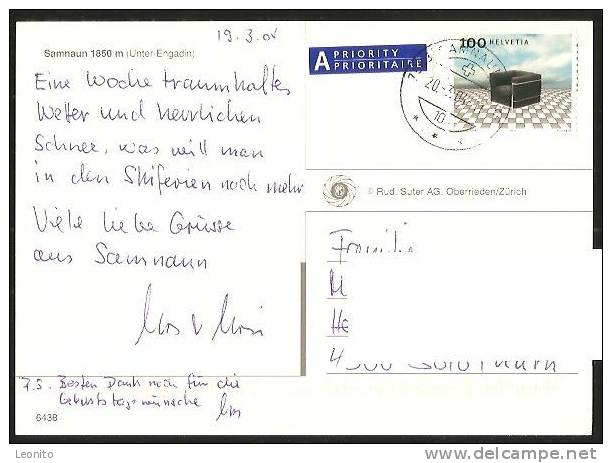 19.3.04
Samnaun 1850 m (Unter-Engadin)
Eine Woche traumhaftes
Wetter und herrlichen
Schnee, was will man
in den Skiferien noch mehr
Viele liebe Grüsse
aus Samnaun
P.S. Besten Dank noch für die
Geburtstagswünsche
6438
A PRIORITY
PRIORITAIRE
100 HELVETIA
SAMNAUN
© Rud. Suter AG, Oberrieden/Zürich
Familie
Delcampe.net
Leonito